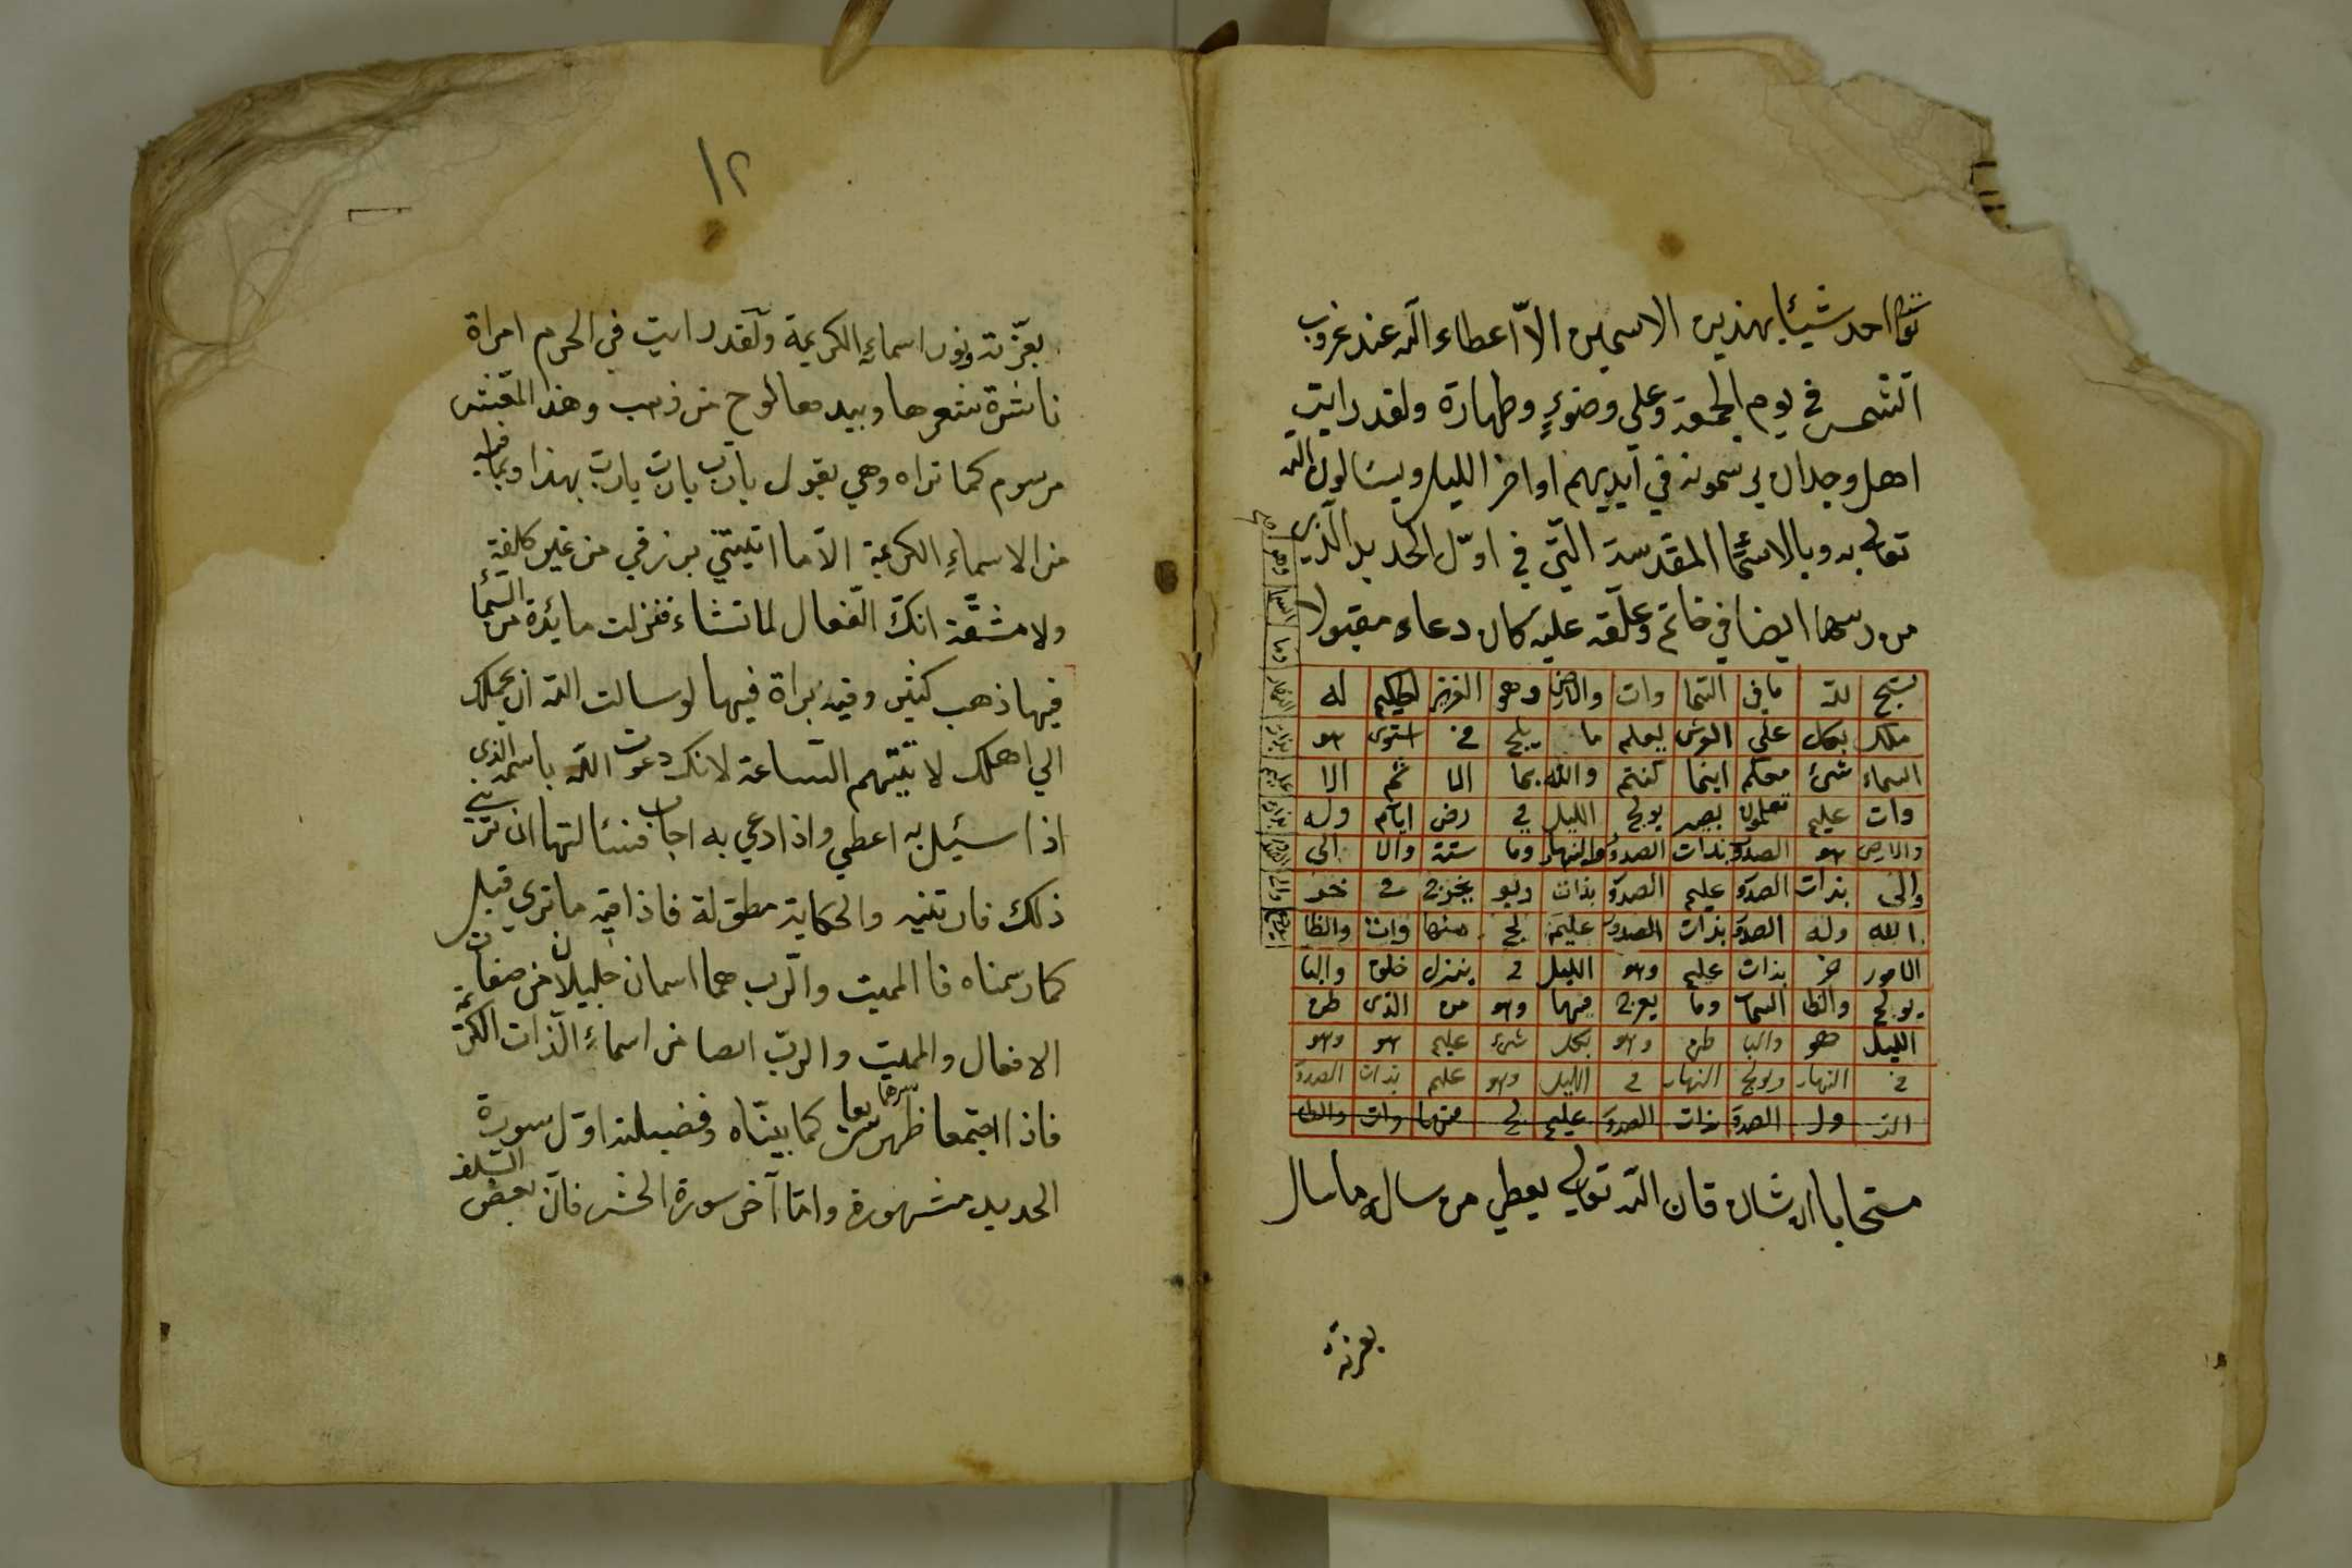 احد شيئا بهذين الاسمين الّا اعطاه الله عند غروب
الشمس في يوم الجمعة وعلي وضوءٍ وطهارة ولقد رايت
اهل وجدان يرسمونه في آيديهم اواخر الليل ويسالون الله
تعالي به وبالاسما المقدسة الّتي في اوّل الحديد الّذي
من رسمها ايضا في خاتم وعلّقه عليه كان دعاءه مقبولا
يسبح لله ما في السما وات والارض وهو العزيز الحكيم له
ملك بكل على العرش يعلم ما يلج في استوى هو
السماء شئ معكم اينما كنتم والله بما الا ثم الا
وات عليم تعملون بصير يولج الليل في رض ايام وله
والارض هو الصدو بذات الصدو والنهار وما ستة والا الى
والى بذات الصدو عليم الصدو بذات وهو يخرج في خر
الله وله الصدو بذات الصدو عليم لج منها وات والظا
الامور خر بذات عليم وهو الليل في ينزل خلق والبا
يولج والظا السما وما يعرج فيها وهو من الذى طن
الليل هو والبا طن وهو بكل شئ عليم هو وهو
في النهار ويولج النهار في الليل وهو عليم بذات الصدو
الصدو بذات الصدو عليم لج منها وات والظا
مستجابا ان شاء فان الله تعالي يعطي من ساله ما سال
بعزته
١٢
بعزّته ونور اسماءِه الكريمة ولقد رايت في الحرم امراة
ناشرة شعرها وبيدها لوح من ذهب وهذا المقنش
مرسوم كما تراه وهي يقول يا ربّ يا ربّ يا ربّ بهذا وبما فيه
من الاسماءِ الكريمة الّا ما اتيتني برزقي من غير كلفة
ولا مشقّة انّك الفعال لما تشاء فنزلت مائدة من السّما
فيها ذهب كثير وفيه براة فيها لو سالت الله ان يحملك
الي اهلك لاتيتهم السّاعة لانك دعوت الله باسمه الذي
اذا سيئل به اعطي واذا دعي به اجاب فسئالتها ان تريني
ذلك فارتنيه والحكاية مطوّلة فاذا فيه ما تري قبل
كما رسمناه فا المميت والرّب هما اسمان جليلان من صفات
الافعال والمميت والربّ ايضا من اسماءِ الذّات الكريمة
فاذا اجتمعا ظهر سرهما سريعا كما بيّناه وفضيلته اوّل سورة
الحديد مشهورة وامّا آخر سورة الحشر فانّ بعض السّلف